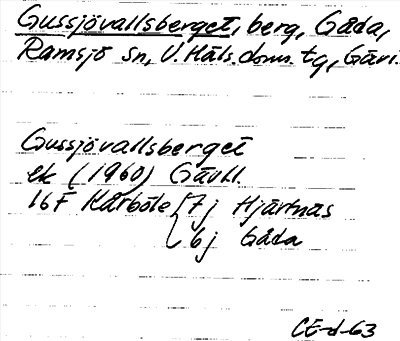 Gussjövallsberget, berg, Gåda,
Ramsjö sn, V. Häls. doms. tg, Gävl.
Gussjövallsberget
ek (1960) Gävl.l
16F Kårböle 7j Hjärtnäs
6j Gåda
CE-d-63